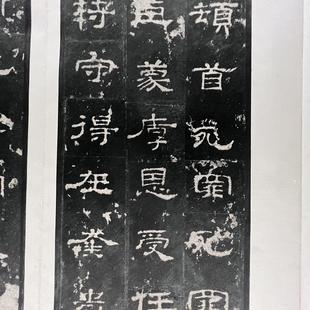 頓首死罪死罪
臣蒙厚恩受任
符守得在奎婁